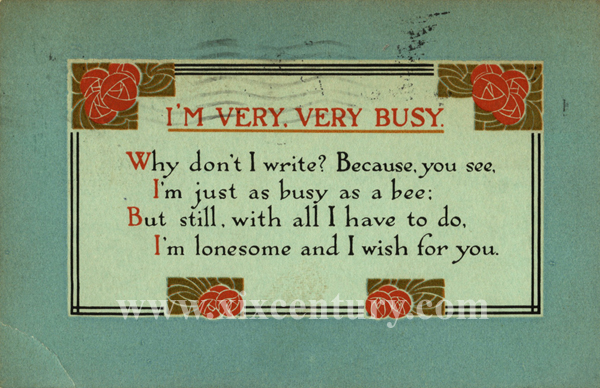 I'M VERY, VERY BUSY.
Why don't I write? Because, you see,
I'm just as busy as a bee;
But still, with all I have to do,
I'm lonesome and I wish for you.
www.xixcentury.com